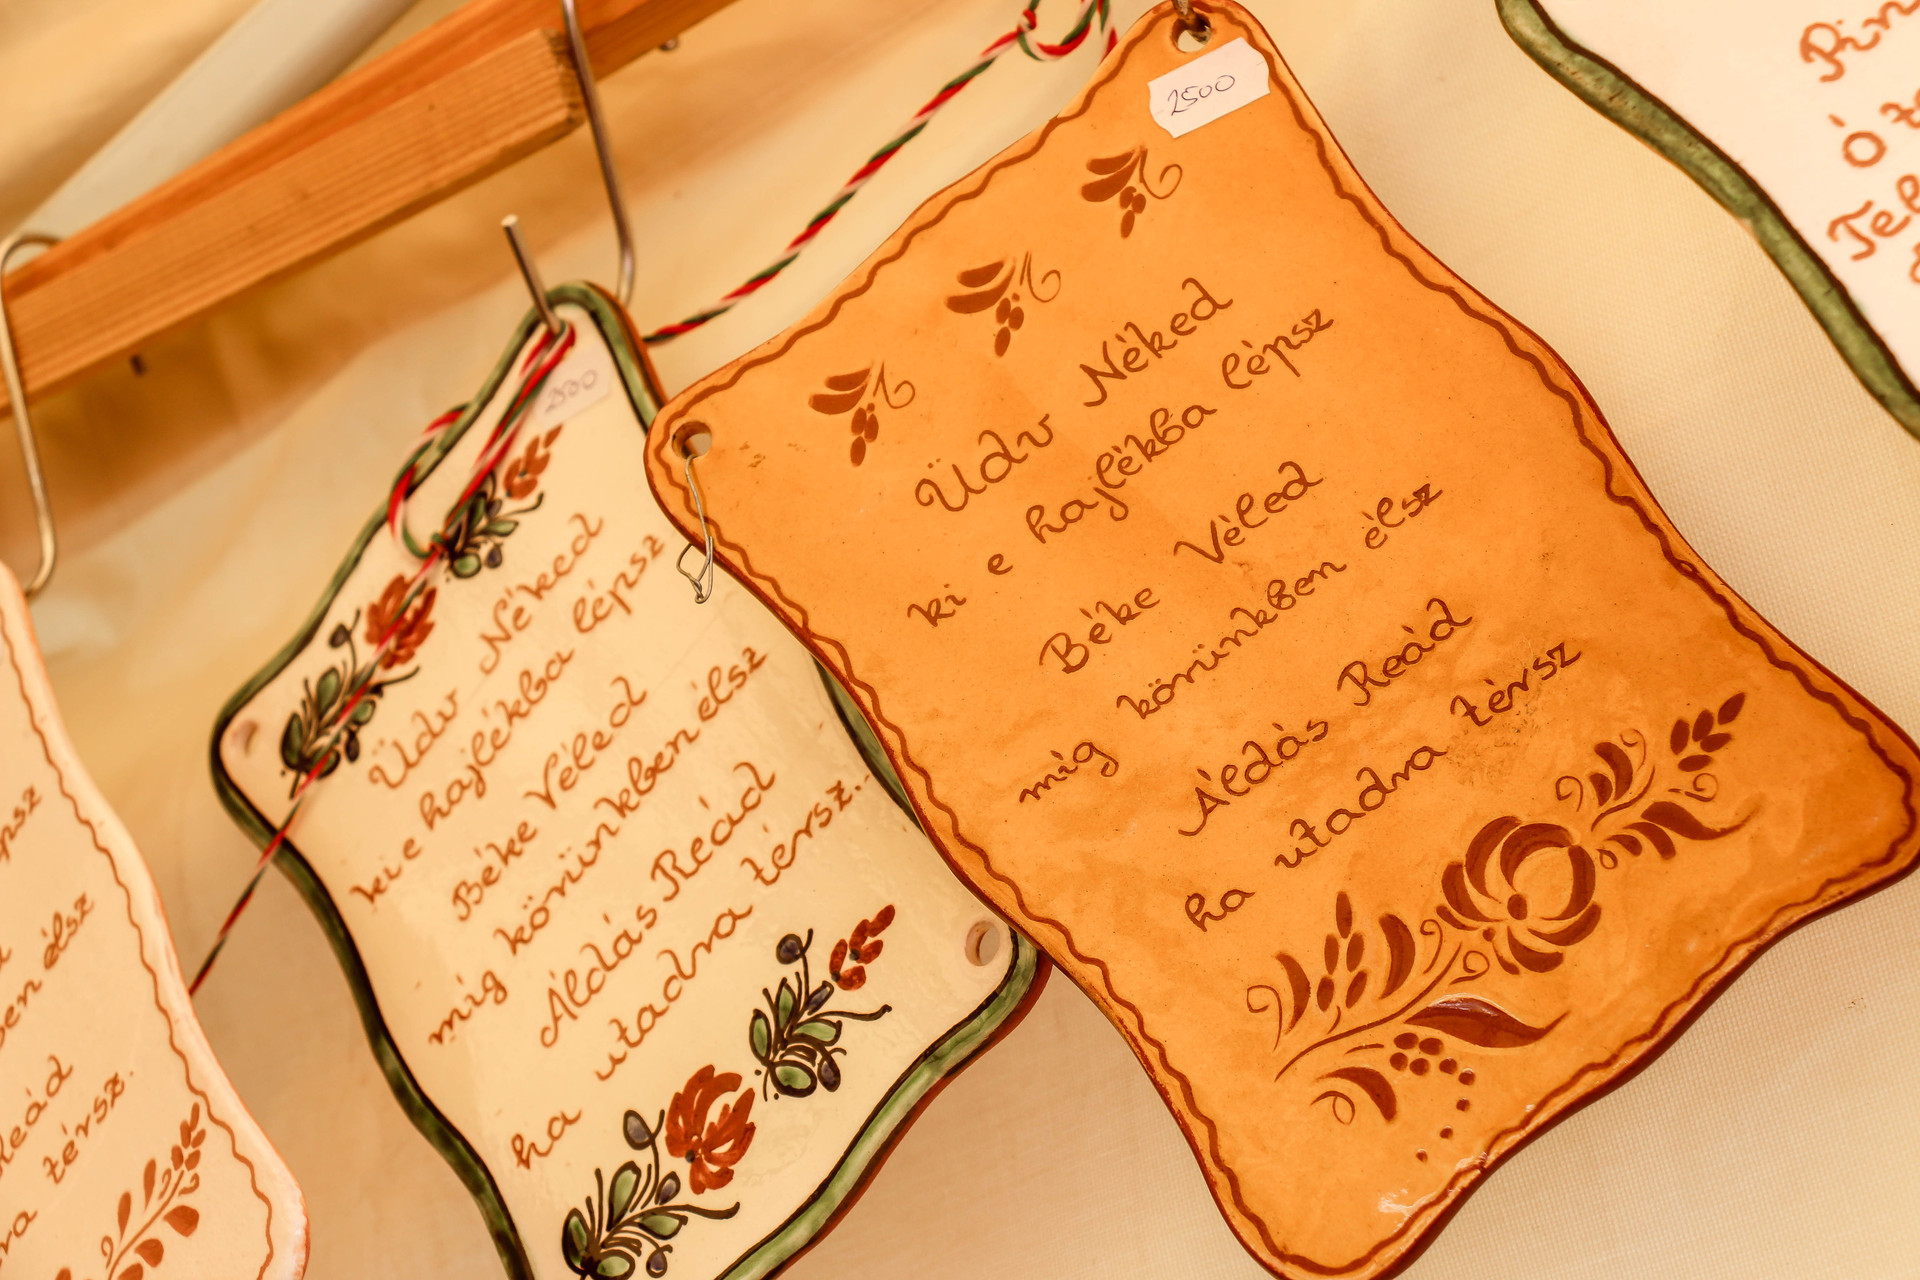 psz
en élsz
Reád
ra térsz.
2500
Üdv Néked
ki e hajlékba lépsz
Béke Véled
míg körünkben élsz
Áldás Reád
ha utadra térsz..
2500
Üdv Néked
ki e hajlékba lépsz
Béke Véled
míg körünkben élsz
Áldás Reád
ha utadra térsz
Pin
Ó
Tel